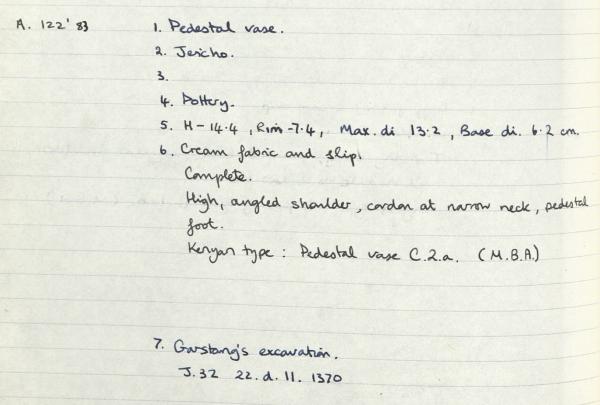 A. 122'83
1. Pedestal vase.
2. Jericho.
3.
4. Pottery.
5. H - 14.4, Rim - 7.4, Max. di 13.2, Base di. 6.2 cm.
6. Cream fabric and slip.
Complete.
High, angled shoulder, cordon at narrow neck, pedestal
foot.
Kenyan type: Pedestal vase C.2.a. (M.B.A.)
7. Garstang's excavation.
J.32 22.d.11. 1370